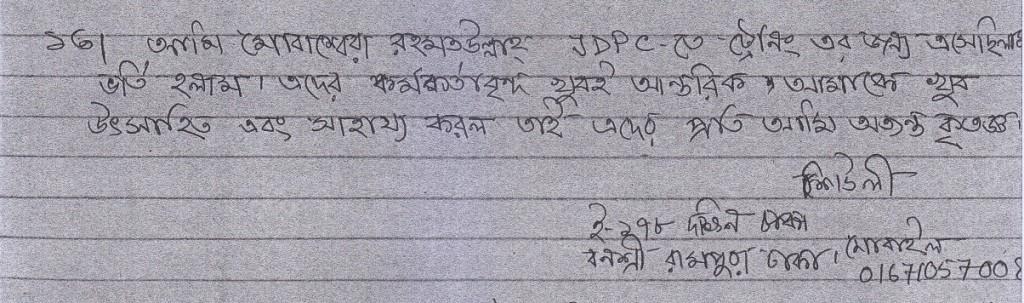 ১৬। আমি মোবাশ্বেরা রহমতউল্লাহ JDPC-তে ট্রেনিং এর জন্য এসেছিলাম
ভর্তি হলাম। এদের কর্মকর্তাবৃন্দ খুবই আন্তরিক, আমাকে খুব
উৎসাহিত এবং সাহায্য করল তাই এদের প্রতি আমি অত্যন্ত কৃতজ্ঞ।
শিউলী
ই-২৭৮ দক্ষিন
বনশ্রী রামপুরা ঢাকা। মোবাইল